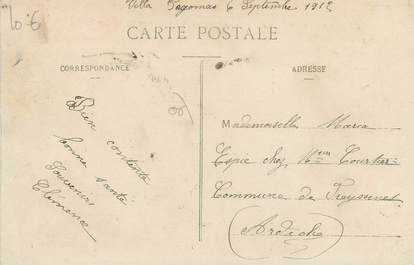 Villa Pegomas 6 Septembre 1912
20 €
CARTE POSTALE
CORRESPONDANCE
ADRESSE
Bien contente
bonne santé
Souvenirs
Clémence
Mademoiselle Maria
Espic chez Mme
Commune de
Ardèche